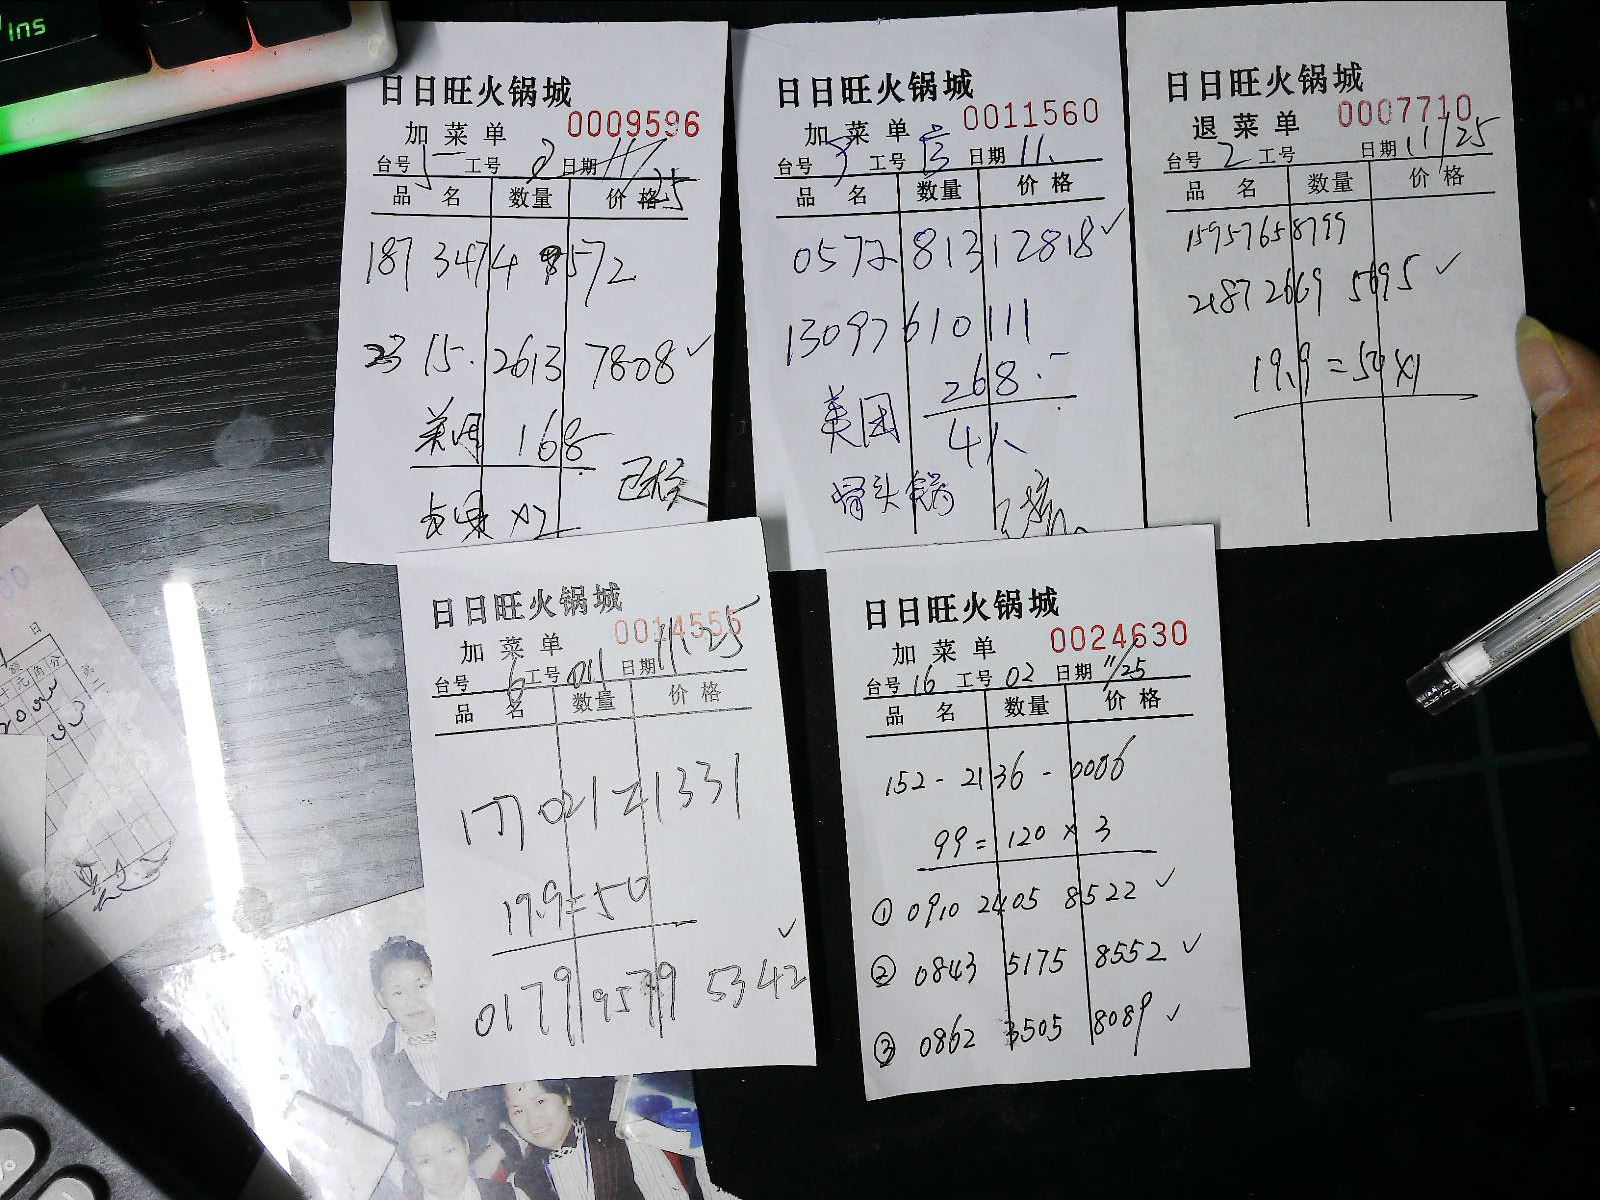 日日旺火锅城
0009596
加菜单
台号 工号 2 日期 11/25
品名 数量 价格
187 3474 8572
2315. 2613 7808 ✓
美团 168
已核
×2
日日旺火锅城
0011560
加菜单
台号 工号 日期 11.
品名 数量 价格
0572 813 12818 ✓
13097610111
268.-
美团 4人
骨头锅
日日旺火锅城
0007710
退菜单
台号 2 工号 日期 11/25
品名 数量 价格
15957658799
2187 2669 5695 ✓
19.9=50×1
日日旺火锅城
0014555
加菜单
台号 6 工号 011 日期 11.25
品名 数量 价格
177 021 21331
19.9=50
✓
0179 9579 5342
日日旺火锅城
0024630
加菜单
台号 16 工号 02 日期 11/25
品名 数量 价格
152-2136-0086
99=120×3
① 0910 2405 8522 ✓
② 0843 5175 8552 ✓
③ 0862 3505 8089 ✓